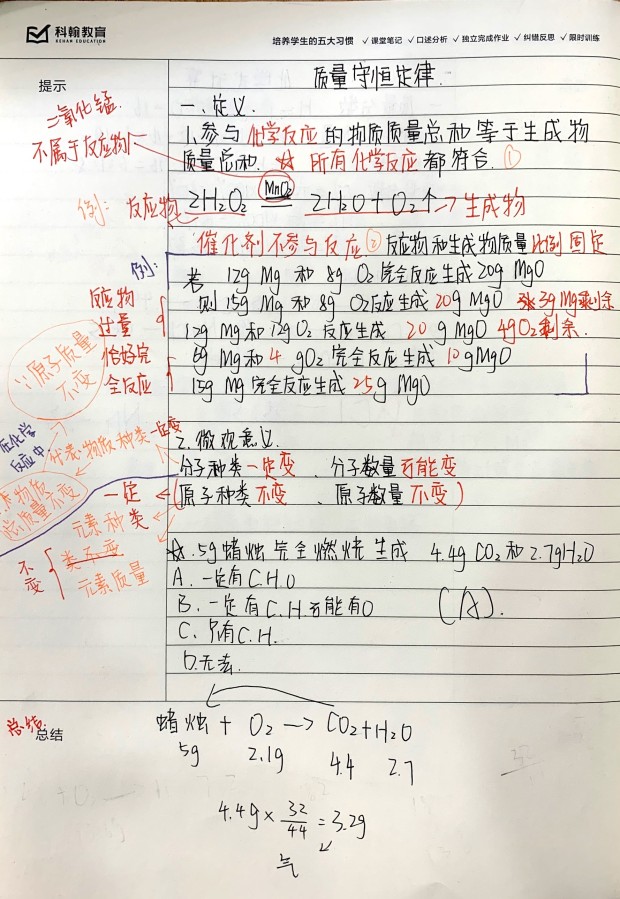 科翰教育
KEHAN EDUCATION
培养学生的五大习惯 ✓课堂笔记 ✓口述分析 ✓独立完成作业 ✓纠错反思 ✓限时训练
提示
质量守恒定律.
二氧化锰
不属于反应物
一、定义.
1.参与化学反应的物质质量总和等于生成物
质量总和. ☆ 所有化学反应都符合. ①
例: 反应物 2H₂O₂ MnO₂ = 2H₂O + O₂↑ → 生成物
催化剂不参与反应 ② 反应物和生成物质量比例固定
例: 若 12g Mg 和 8g O₂ 完全反应生成 20g MgO
则 15g Mg 和 8g O₂反应生成 20g MgO 3g Mg剩余
12g Mg 和 12g O₂ 反应生成 20g MgO 4g O₂剩余.
6g Mg和 4 gO₂ 完全反应生成 10gMgO
15g Mg 完全反应生成 25g MgO
反应物
过量
恰好完
全反应
∵原子质量
不变
在化学
反应中
代表物质种类一定变
物质
总质量不变
2.微观意义.
分子种类一定变 、分子数量可能变
(原子种类不变 、原子数量不变)
一定
不变
元素种类
类不变
元素质量
☆.5g蜡烛完全燃烧生成 4.4g CO₂和2.7gH₂O
A.一定有C.H.O
B.一定有C.H.可能有O
(A).
C.只有C.H.
D.无法.
总结.
总结
蜡烛 + O₂ → CO₂+H₂O
5g 2.1g 4.4 2.7
4.4g × 32/44 = 3.2g
氧